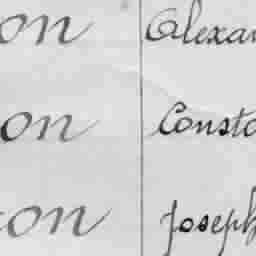 on Alexan
on Consta
on Joseph